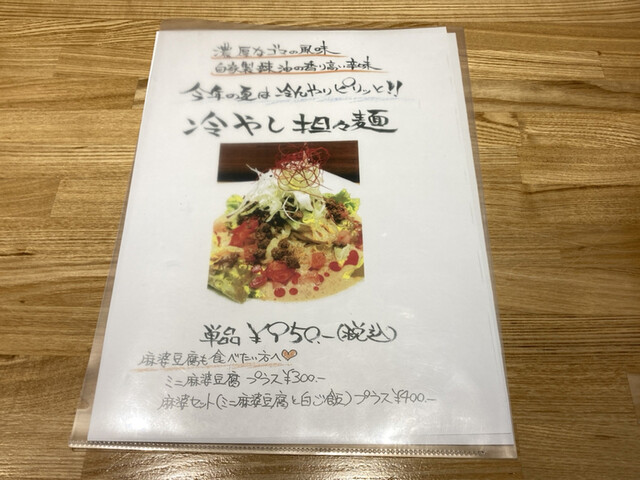 濃厚なゴマの風味
自家製辣油の香り高い辛味
今年の夏は冷んやりピリッと!!
冷やし担々麺
単品 ¥950.-(税込)
麻婆豆腐も食べたい方へ♡
ミニ麻婆豆腐 プラス ¥300.-
麻婆セット(ミニ麻婆豆腐と白ご飯) プラス ¥400.-